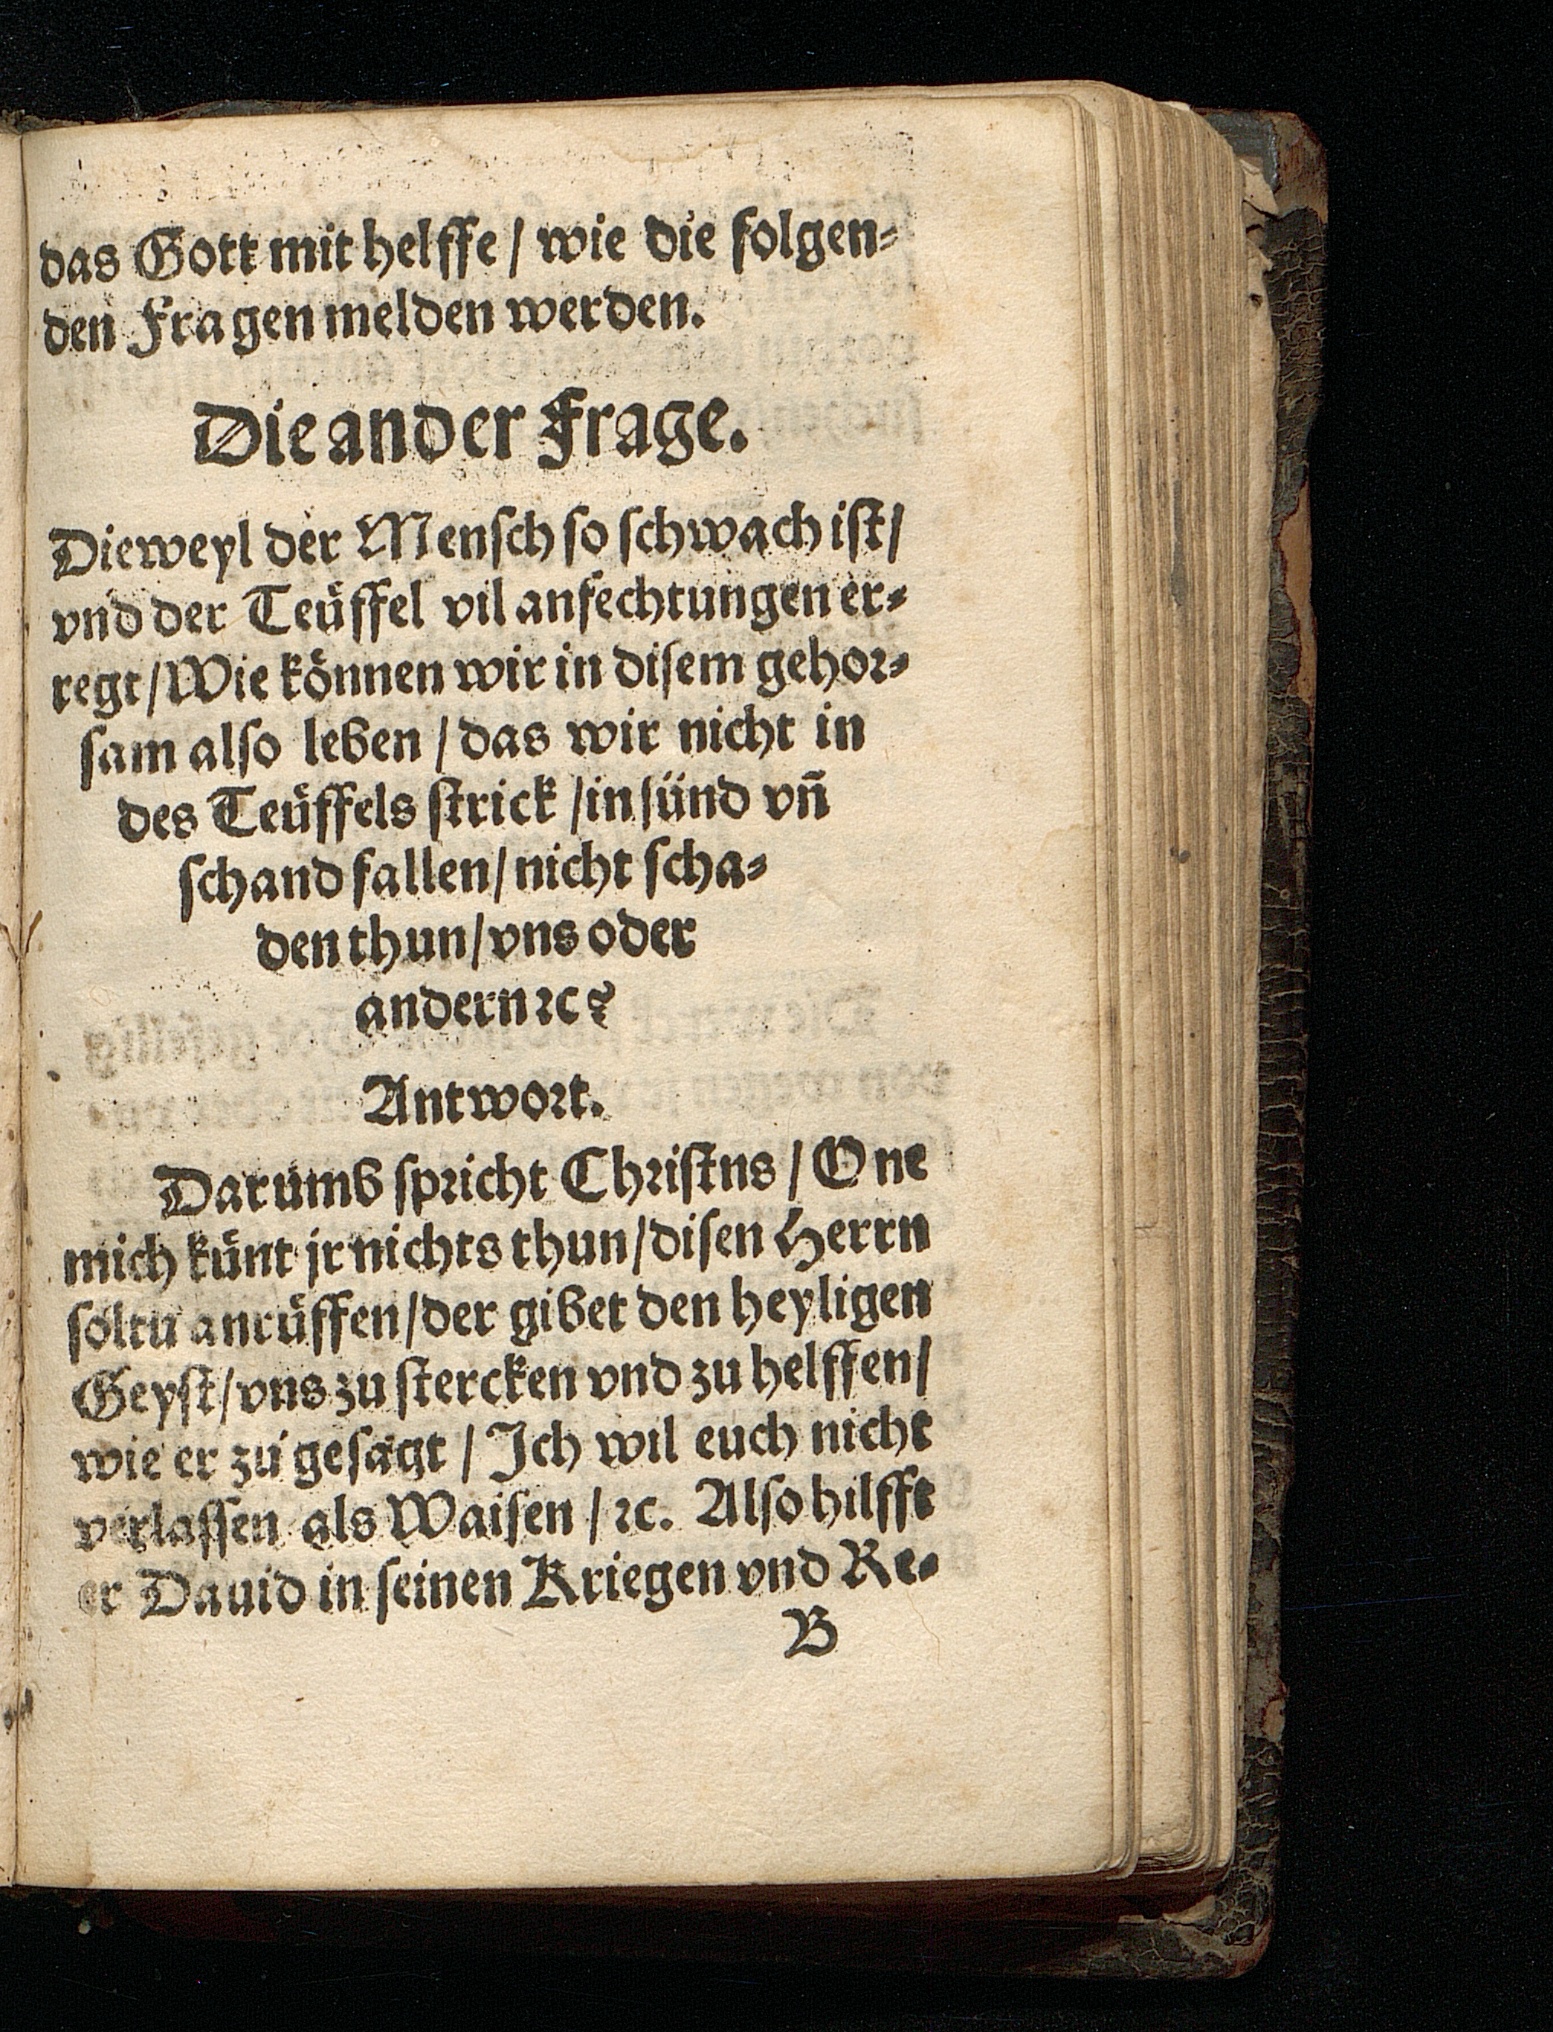 das Gott mit helffe / wie die folgen⸗
den Fragen melden werden.
Die ander Frage.
Dieweyl der Menſch ſo ſchwach iſt /
vnd der Teüffel vil anfechtungen er⸗
regt / Wie können wir in diſem gehor⸗
ſam alſo leben / das wir nicht in
des Teüffels ſtrick / in ſünd vñ
ſchand fallen / nicht ſcha⸗
den thun / vns oder
andern ꝛc?
Antwort.
Darumb ſpricht Chriſtns / One
mich künt jr nichts thun / diſen Herrn
ſoltu anrüffen / der gibet den heyligen
Geyſt / vns zu ſtercken vnd zu helffen /
wie er zu geſagt / Ich wil euch nicht
verlaſſen als Waiſen / ꝛc. Alſo hilfft
er Dauid in ſeinen Kriegen vnd Re⸗
B